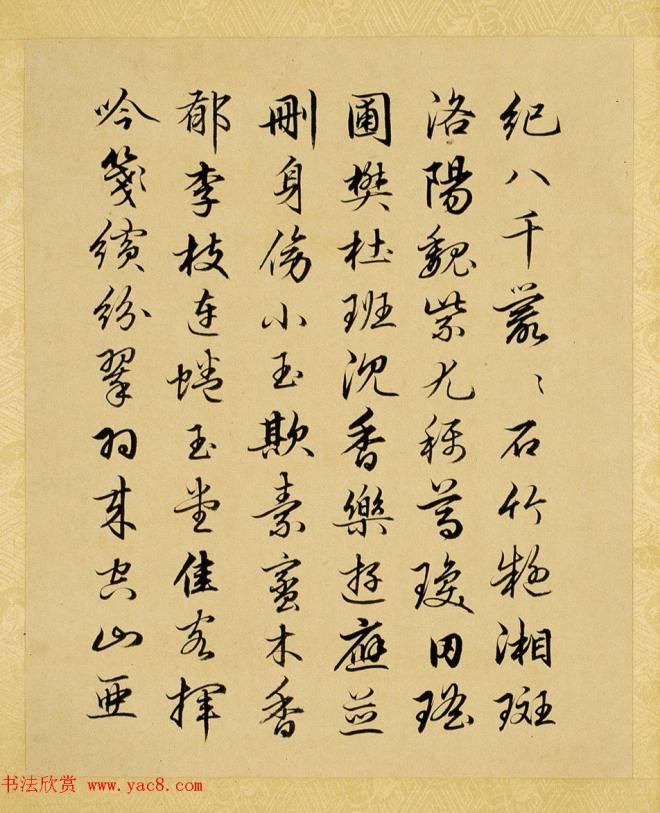 紀八千叢〻石竹艷湘斑
洛陽魏紫尤稱尊瓊田瑤
圃樊杜班沉香樂遊應並
刪身傍小玉欺素蜜木香
郁李枝連蜷玉堂佳客揮
吟箋繽紛翠羽來空山亜
书法欣赏 www.yac8.com